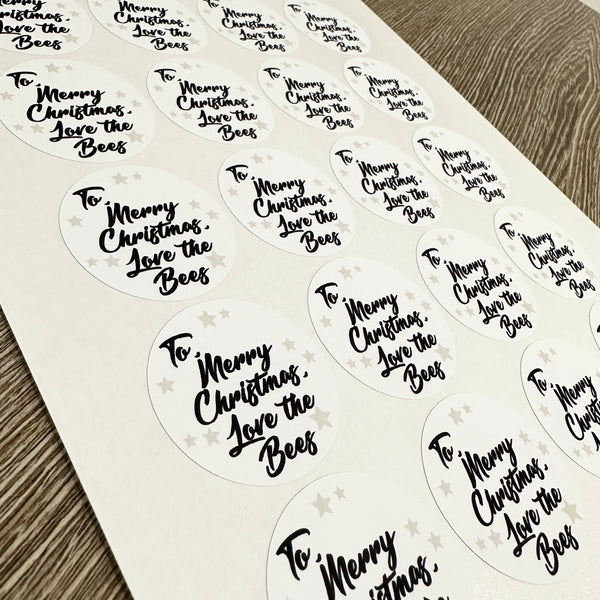 Love the
Bees
Christmas,
Love the
Bees
Christmas,
Love the
Bees
Merry
Christmas,
Love the
Bees
To,
Merry
Christmas,
Love the
Bees
To,
Merry
Christmas,
Love the
Bees
To,
Merry
Christmas,
Love the
Bees
To,
Merry
Christmas,
Love the
Bees
To,
Merry
Christmas,
Love the
Bees
To,
Merry
Christmas,
Love the
Bees
To,
Merry
Christmas,
Love the
Bees
To,
Merry
Christmas,
Love the
Bees
To,
Merry
Christmas,
Love the
Bees
To,
Merry
Christmas,
Love the
Bees
To,
Merry
Christmas,
Love the
Bees
To,
Merry
Christmas,
Love the
Bees
To,
Merry
To,
Merry
Christmas,
Love the
Bees
To,
Merry